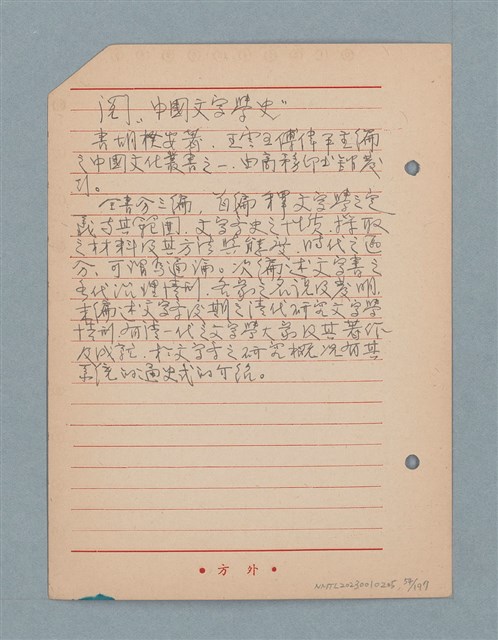 閱“中國文字學史”
書胡樸安著，王雲五傅緯平主編
之中國文化叢書之一，由商務印书館發
刊。
全書分三編，首編釋文字學之定
義与其範圍，文字学史之性質，採取
之材料及其方法與態度，時代之區
分，可謂為通論。次編述文字書之
歷代沿理情形，各家之衣說及發明，
末編述文字学後期之清代研究文字學
情形，有清一代之文字學大家及其著作
及成就，於文字学之研究概况有其
系统的通史式的介紹。
方外
NMTL20230010225, 58/197